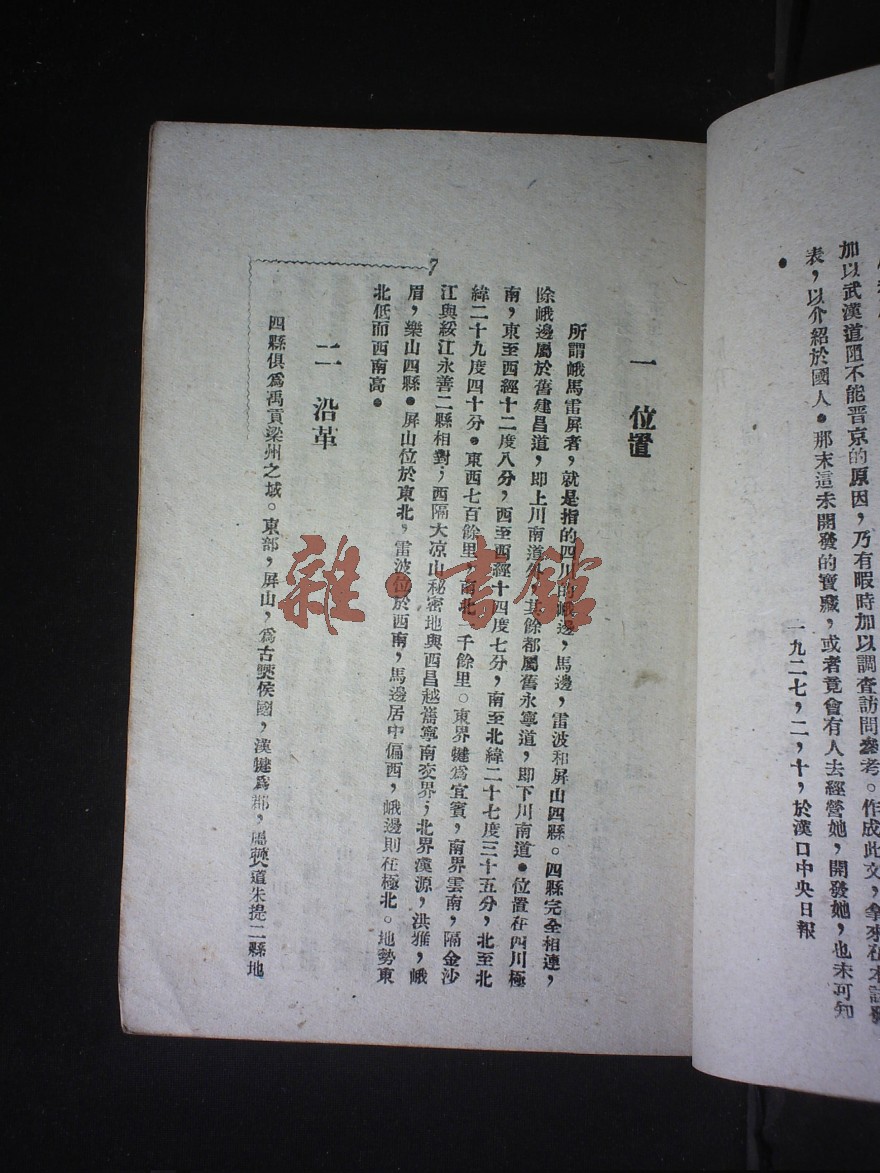 加以武漢道阻不能晋京的原因，乃有暇時加以調查訪問參考。作成此文，拿來在本誌發
表，以介紹於國人。那末這未開發的寶藏，或者竟會有人去經營她，開發她，也未可知
。
一九二七，二，十，於漢口中央日報
7
一 位置
所謂峨馬雷屏者，就是指的四川的峨邊，馬邊，雷波和屏山四縣。四縣完全相連，
除峨邊屬於舊建昌道，即上川南道外，其餘都屬舊永寧道，即下川南道。位置在四川極
南，東至西經十二度八分，西至西經十四度七分，南至北緯二十七度三十五分，北至北
緯二十九度四十分。東西七百餘里，南北 千餘里。東界犍為宜賓，南界雲南，隔金沙
江與綏江永善二縣相對；西隔大凉山秘密地與西昌越嶲寧南交界；北界漢源，洪雅，峨
眉，樂山四縣。屏山位於東北，雷波位於西南，馬邊居中偏西，峨邊則在極北。地勢東
北低而西南高。
二 沿革
四縣俱爲禹貢梁州之域。東部，屏山，爲古僰侯國，漢犍爲郡，屬僰道朱提二縣地
雜·書館